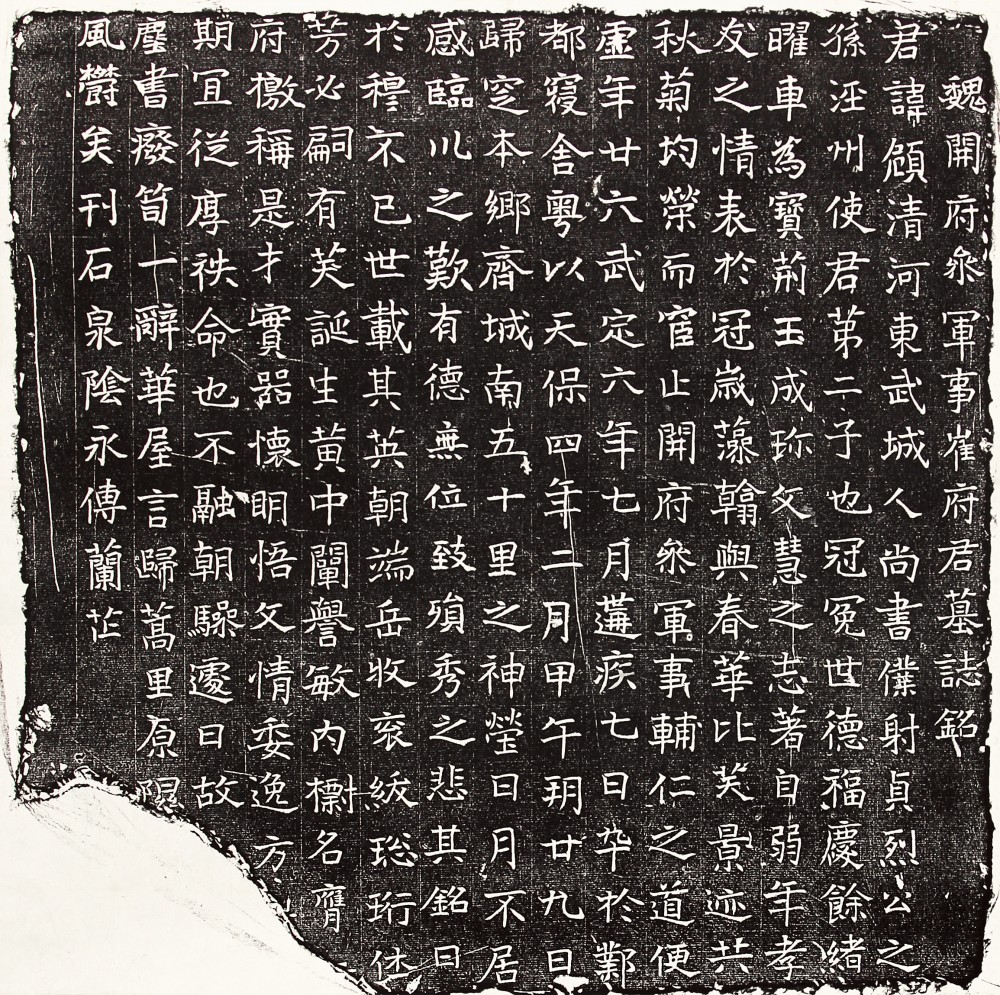 魏開府參軍事崔府君墓誌銘
君諱頠清河東武城人尚書僕射貞烈公之
孫涇州使君第二子也冠冕世德福慶餘緒
曜車為寶荊玉成珎文慧之志著自弱年孝
友之情表於冠歲藻翰與春華比芙景迹共
秋菊均榮而宦止開府參軍事輔仁之道便
虛年廿六武定六年七月遘疾七日卒於鄴
都寢舍粵以天保四年二月甲午玥廿九日
歸窆本鄉齊城南五十里之神塋日月不居
感臨川之歎有德無位致殞秀之悲其銘曰
於穆不已世載其英朝端岳收袞紱珩
芳必嗣有芙誕生黃中闡譽敏內檦名膺
府檄稱是才實器懷明悟文情委逸方
期宜從厚祑命也不融朝驂遽日故
塵書癈笥一辭華屋言歸蒿里原隰
風欝矣刊石泉陰永傳蘭芷